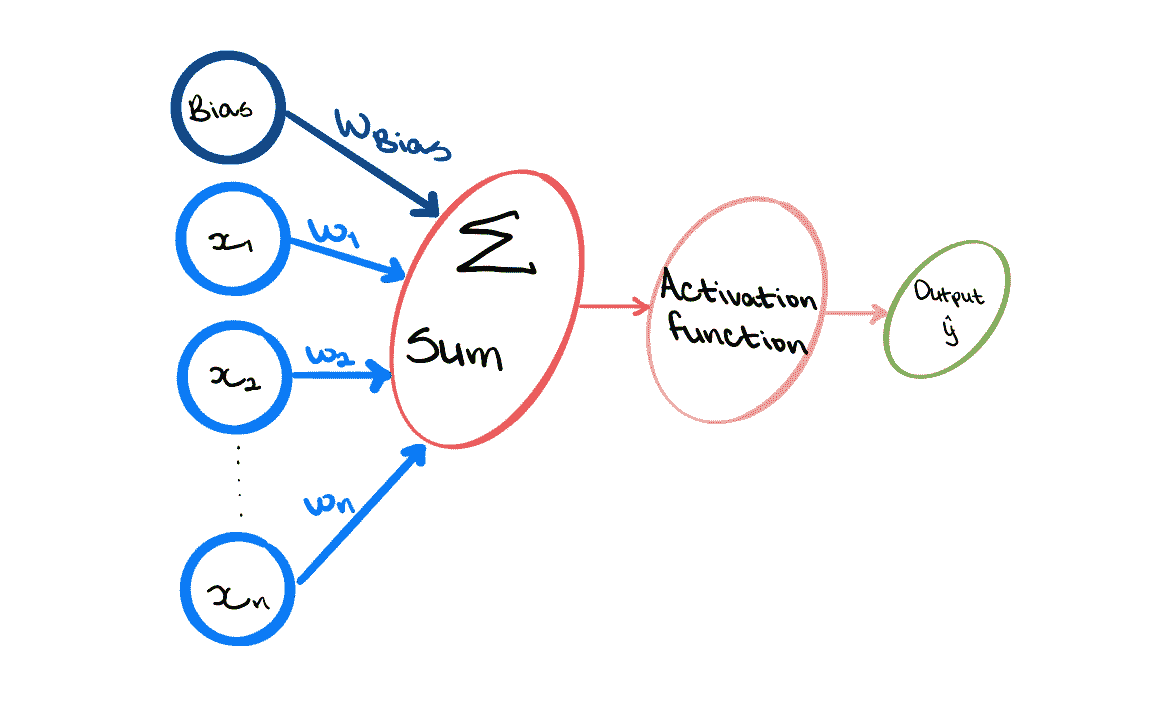 Bias
W_Bias
x₁
w₁
x₂
w₂
xₙ
wₙ
Σ
Sum
Activation
function
Output
ŷ